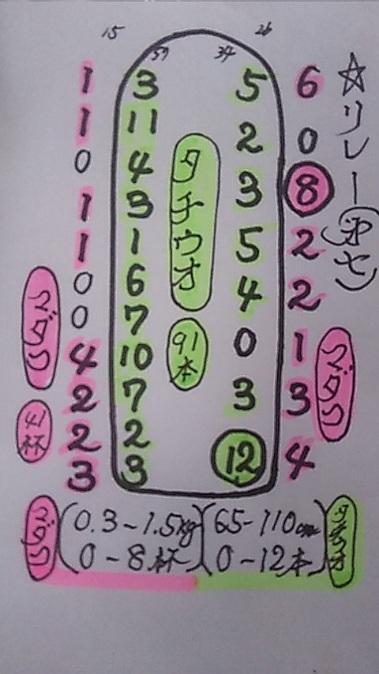 ☆リレー(オセ)
15 59 34 26
1 3 5 6
1 11 2 0
0 4 3 8
1 3 5 2
1 1 4 2
0 6 0 1
0 7 3 3
4 10 12 4
2 7
2 2
3 3
タチウオ
91本
マダコ
41杯
マダコ
マダコ (0.3-1.5kg) (65-110cm) タチウオ
0-8杯 0-12本